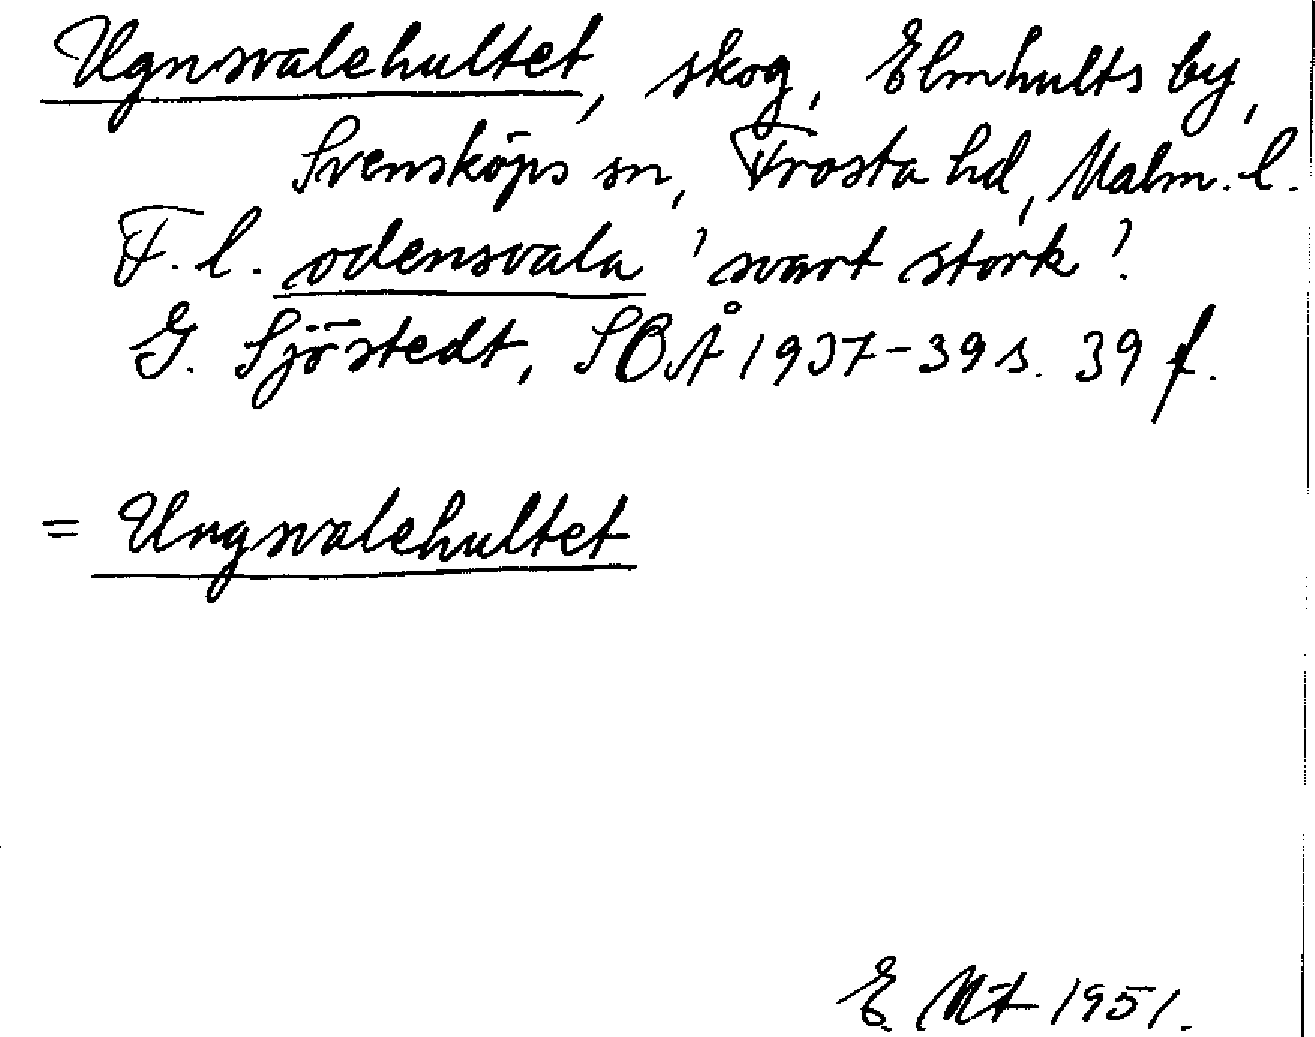 Ugnsvalehultet, skog, Elmhults by,
Svensköps sn, Frosta hd, Malm. l.
F. l. odensvala 'svart stork'.
G. Sjöstedt, SOÅ 1937-39 s. 39 f.
= Ungsvalehultet
E. 1951.